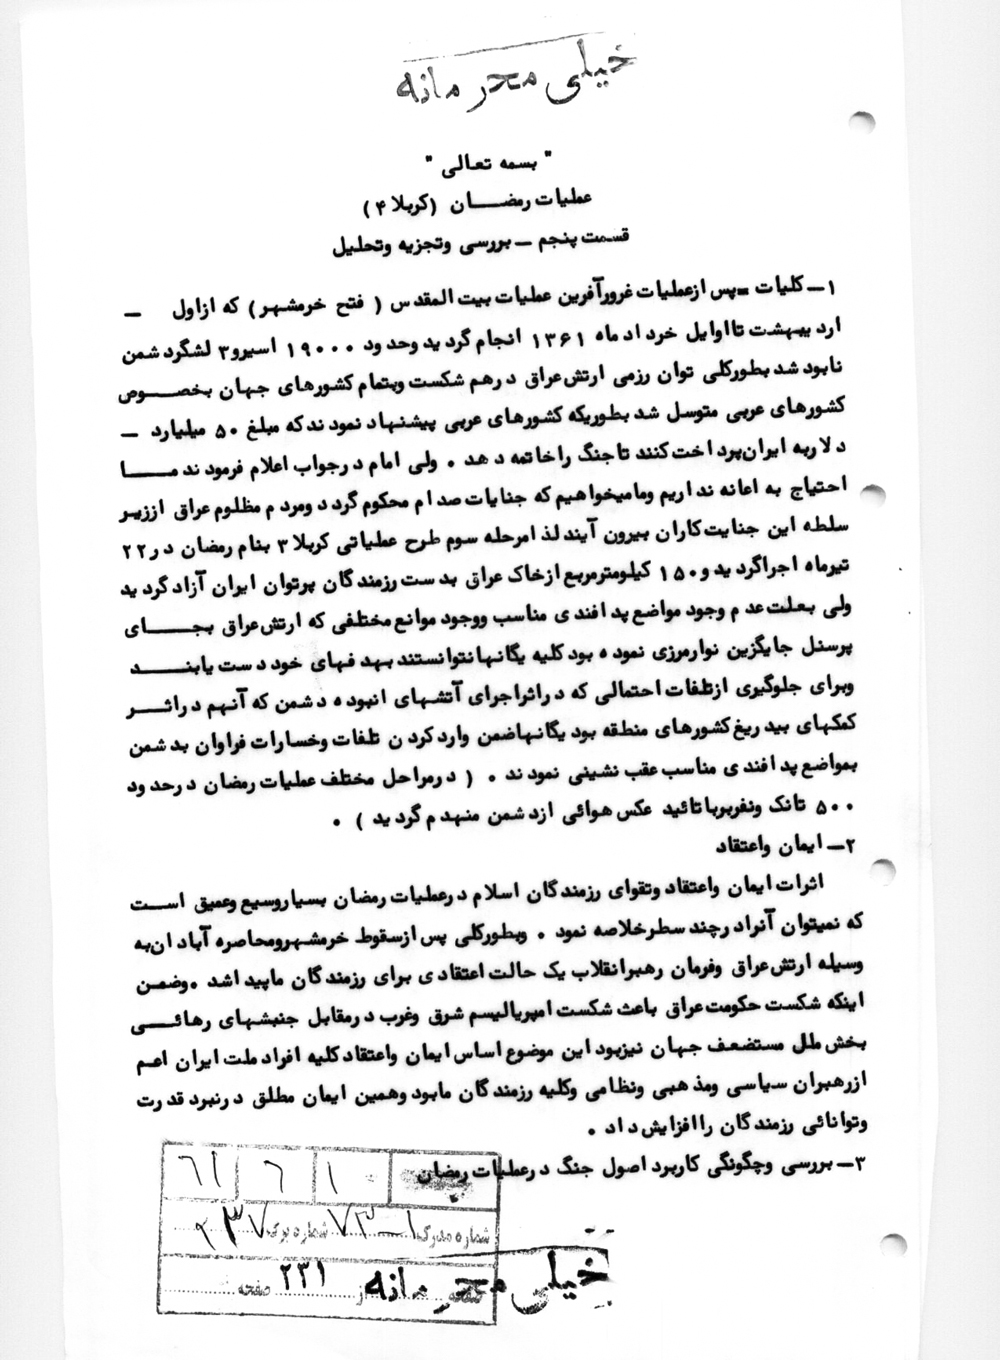 خیلی محرمانه
" بسمه تعالی "
عملیات رمضـــان (کربلا ۴)
قسمت پنجم ــ بررسی وتجزیه وتحلیل
۱ــ کلیات =پس ازعملیات غرورآفرین عملیات بیت المقدس ( فتح خرمشهر) که ازاول ــ
اردیبهشت تااوایل خرداد ماه ۱۳۶۱ انجام گردید وحدود ۱۹۰۰۰ اسیرو۳ لشگردشمن
نابود شد بطورکلی توان رزمی ارتش عراق درهم شکست وبتمام کشورهای جهان بخصـــوص
کشورهای عربی متوسل شد بطوریکه کشورهای عربی پیشنهاد نمودند که مبلغ ۵۰ میلیارد ــ
دلاربه ایران پرداخت کنند تاجنگ راخاتمه دهد . ولی امام درجواب اعلام فرمودند مـــا
احتیاج به اعانه نداریم ومامیخواهیم که جنایات صدام محکوم گردد ومردم مظلوم عراق اززیـر
سلطه این جنایت کاران بیرون آیند لذا مرحله سوم طرح عملیاتی کربلا ۳ بنام رمضان در۲۲
تیرماه اجراگردید و۱۵۰ کیلومترمربع ازخاک عراق بدست رزمندگان پرتوان ایران آزاد گردید
ولی بعلت عدم وجود مواضع پدافندی مناسب ووجود موانع مختلفی که ارتش عراق بجـــای
پرسنل جایگزین نوارمرزی نموده بود کلیه یگانهانتوانستند بهدفهای خود دست یابنـــد
وبرای جلوگیری ازتلفات احتمالی که دراثراجرای آتشهای انبوده دشمن که آنهم دراثـــر
کمکهای بیدریغ کشورهای منطقه بود یگانهاضمن وارد کردن تلفات وخسارات فراوان بدشمن
بمواضع پدافندی مناسب عقب نشینی نمودند . ( درمراحل مختلف عملیات رمضان درحدود
۵۰۰ تانک ونفربربا تائید عکس هوائی ازدشمن منهدم گردید ) .
۲ــ ایمان واعتقاد
اثرات ایمان واعتقاد وتقوای رزمندگان اسلام درعملیات رمضان بسیاروسیع وعمیق اســت
که نمیتوان آنراد رچند سطرخلاصه نمود . وبطورکلی پس ازسقوط خرمشهرومحاصره آبادان به
وسیله ارتش عراق وفرمان رهبرانقلاب یک حالت اعتقادی برای رزمندگان ماپیداشد .وضمـن
اینکه شکست حکومت عراق باعث شکست امپریالیسم شرق وغرب درمقابل جنبشهای رهائـــی
بخش ملل مستضعف جهان نیزبود این موضوع اساس ایمان واعتقاد کلیه افراد ملت ایران اعـم
ازرهبران سیاسی ومذهبی ونظامی وکلیه رزمندگان مابود وهمین ایمان مطلق درنبرد قدرت
وتوانائی رزمندگان راافزایش داد .
۳ــ بررسی وچگونگی کاربرد اصول جنگ درعملیات رمضان
۱ ۶ ۶۱
شماره مدرک ۷۳-۱ شماره برگ
صفحه از ۲۳۱ صفحه
خیلی محرمانه